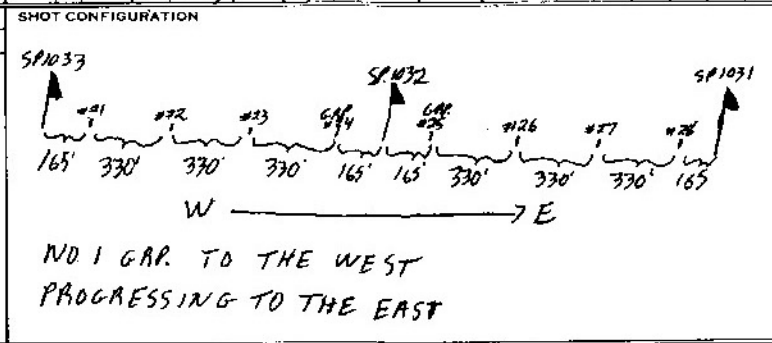 SHOT CONFIGURATION
SP.1033 SP.1032 SP.1031
#21 #22 #23 GRP. #24 GRP. #25 #126 #27 #28
165' 330' 330' 330' 165' 165' 330' 330' 330' 165
W E
NO. 1 GRP. TO THE WEST
PROGRESSING TO THE EAST